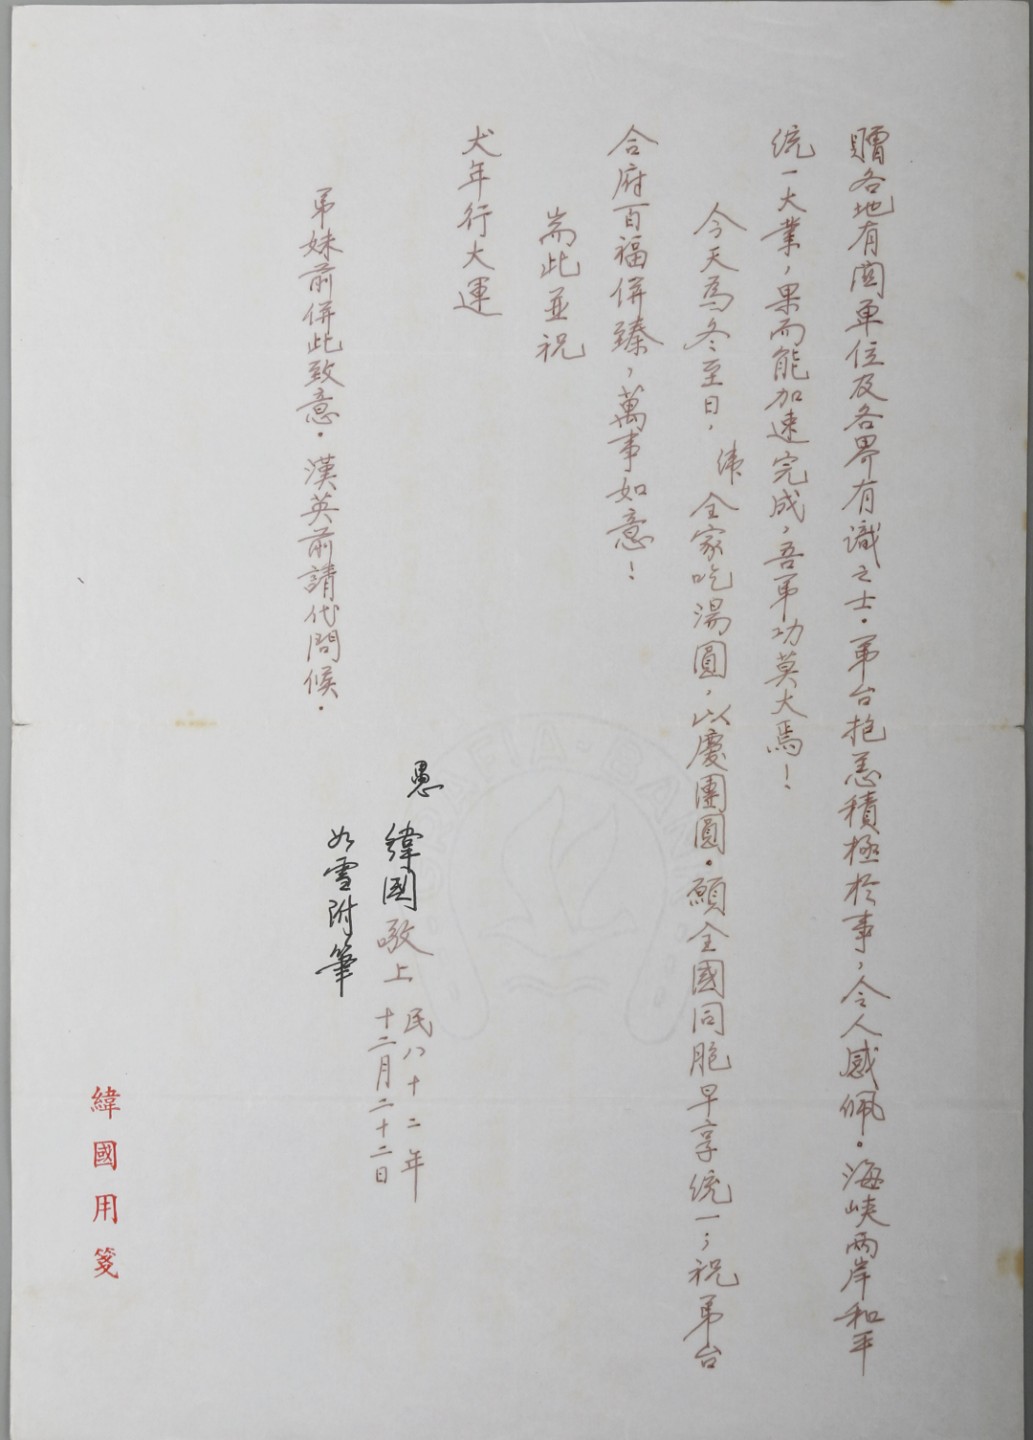 贈各地有関單位及各界有識之士。弟台抱恙積極於事，令人感佩。海峽両岸和平
統一大業，果而能加速完成，吾弟功莫大焉！
今天為冬至日，緯全家吃湯圓，以慶團圓。願全國同胞早享統一；祝弟台
合府百福併臻，萬事如意！
耑此並祝
犬年行大運
弟妹前併此致意。漢英前請代問候。
愚 緯國敬上 民八十二年
十二月二十二日
如雪附筆
緯國用箋